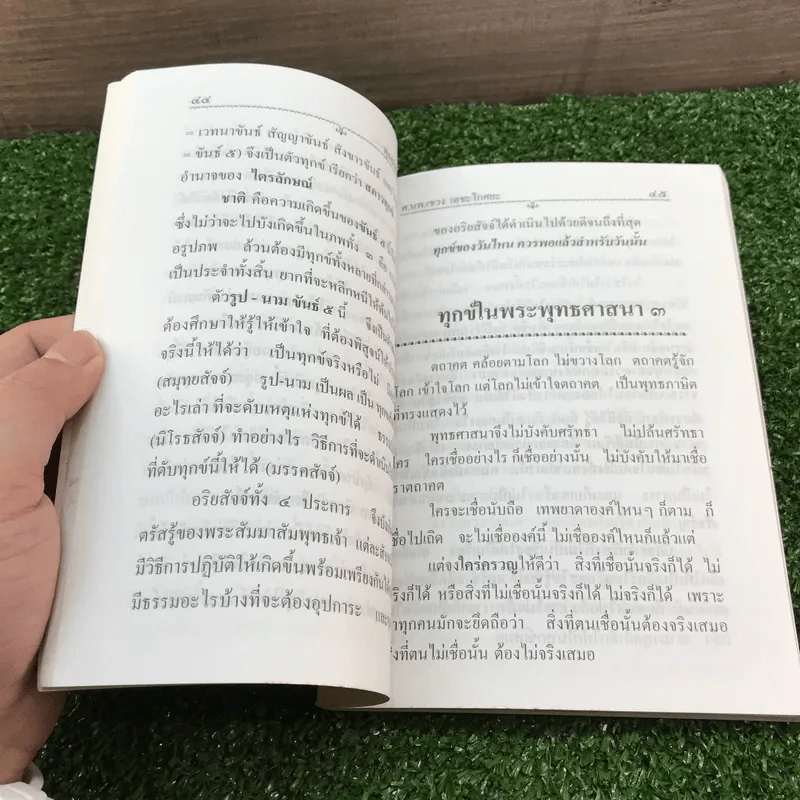 ๔๔
= เวทนาขันธ์ สัญญาขันธ์ สังขารขันธ์
= ขันธ์ ๕) จึงเป็นตัวทุกข์ (เรียกว่า สภาวทุกข์
อำนาจของ ไตรลักษณ์
ชาติ คือความเกิดขึ้นของขันธ์ ๕
ซึ่งไม่ว่าจะไปบังเกิดขึ้นในภพทั้ง ๓ คือ
อรูปภพ ล้วนต้องมีทุกข์ทั้งหลายที่กล่าว
เป็นประจำทั้งสิ้น ยากที่จะหลีกหนีให้พ้น
ตัวรูป - นาม ขันธ์ ๕ นี้ จึงเป็น
ต้องศึกษาให้รู้ให้เข้าใจ ที่ต้องพิสูจน์ให้
จริงนี้ให้ได้ว่า เป็นทุกข์จริงหรือไม่
(สมุทยสัจจ์) รูป-นาม เป็นผล เป็น ทุกข์
อะไรเล่า ที่จะดับเหตุแห่งทุกข์ได้
(นิโรธสัจจ์) ทำอย่างไร วิธีการที่จะดำเนิน
ที่ดับทุกข์นี้ให้ได้ (มรรคสัจจ์)
อริยสัจจ์ทั้ง ๔ ประการ จึง
ตรัสรู้ของพระสัมมาสัมพุทธเจ้า แต่ละ
มีวิธีการปฏิบัติให้เกิดขึ้นพร้อมเพรียงกัน
มีธรรมอะไรบ้างที่จะต้องอุปการะ และ
ศ.นพ.เชวง เดชะไกศยะ ๔๕
ของอริยสัจจ์ได้ดำเนินไปด้วยดีจนถึงที่สุด
ทุกข์ของวันไหน ควรพอแล้วสำหรับวันนั้น
ทุกข์ในพระพุทธศาสนา ๓
ตถาคต คล้อยตามโลก ไม่ขวางโลก ตถาคตรู้จัก
โลก เข้าใจโลก แต่โลกไม่เข้าใจตถาคต เป็นพุทธภาษิต
ที่ทรงแสดงไว้
พุทธศาสนาจึงไม่บังคับศรัทธา ไม่ปล้นศรัทธา
ใคร ใครเชื่ออย่างไร ก็เชื่ออย่างนั้น ไม่บังคับให้มาเชื่อ
ราตถาคต
ใครจะเชื่อนับถือ เทพยาดาองค์ไหนๆ ก็ตาม ก็
ชื่อไปเถิด จะไม่เชื่อองค์นี้ ไม่เชื่อองค์ไหนก็แล้วแต่
แต่จงใคร่ครวญให้ดีว่า สิ่งที่เชื่อนั้นจริงก็ได้ ไม่
จริงก็ได้ หรือสิ่งที่ไม่เชื่อนั้นจริงก็ได้ ไม่จริงก็ได้ เพราะ
าทุกคนมักจะยึดถือว่า สิ่งที่ตนเชื่อนั้นต้องจริงเสมอ
งที่ตนไม่เชื่อนั้น ต้องไม่จริงเสมอ